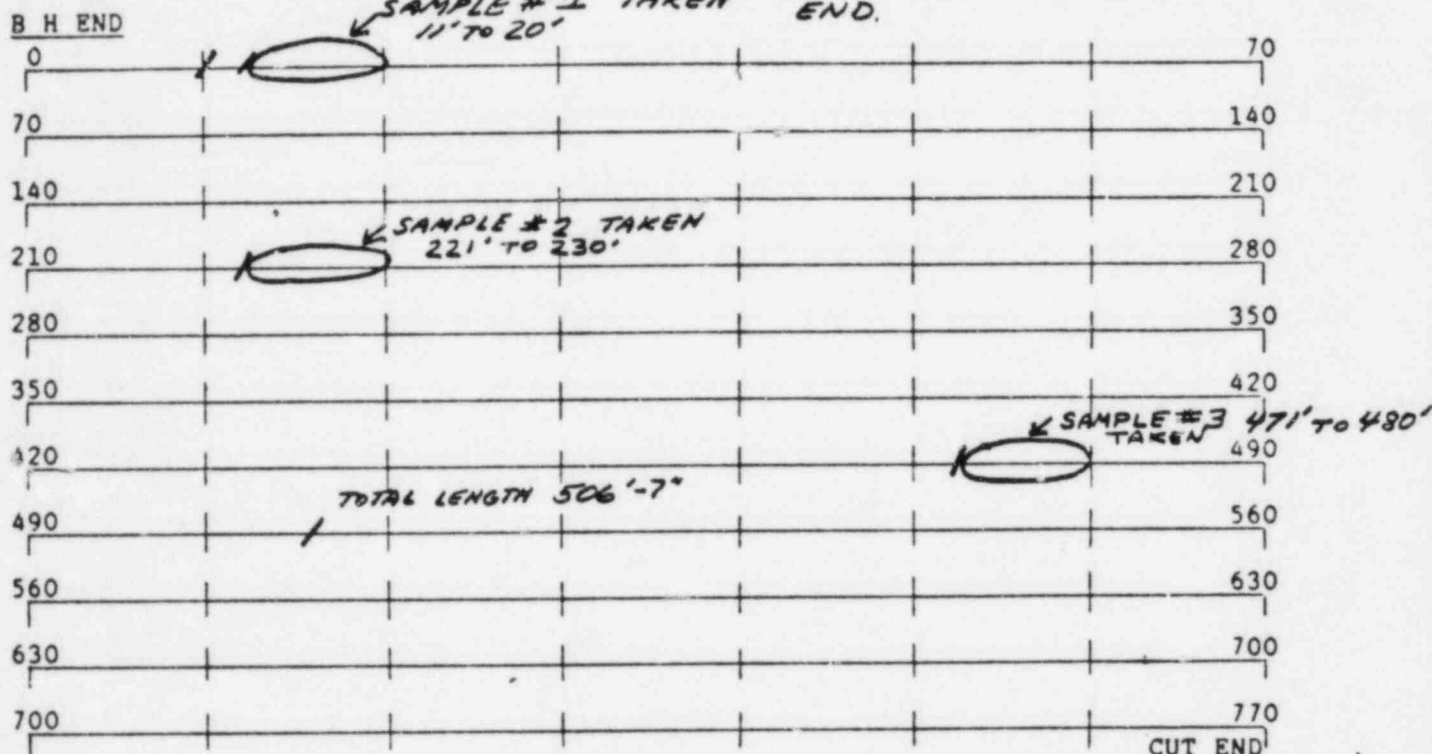 SAMPLE # 1 TAKEN END.
11' TO 20'
B H END
0 70
70 140
140 210
SAMPLE # 2 TAKEN
221' TO 230'
210 280
280 350
350 420
SAMPLE # 3 471' TO 480'
TAKEN
420 490
TOTAL LENGTH 506'-7"
490 560
560 630
630 700
700 770
CUT END